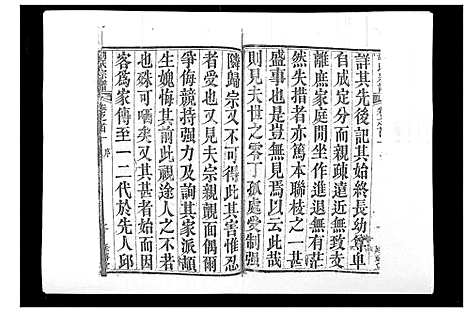 詳其先後記其始終長幼尊卑
自成定分而親疎遠近無致支
離庶家庭間坐作進退無有茫
然失措者亦篤本聯枝之一大
盛事也是豈無見焉以云此哉
則見夫世之零丁孤處受制強
隣歸宗又不可得此其害惟忍
者受也又見夫宗親覿面偶爾
爭侮競持強力與其家派顛
生媿悔其諭此視途人之不若
也殊可嗤矣又其甚者始而因
客爲家傳至一二代於先人邱
序